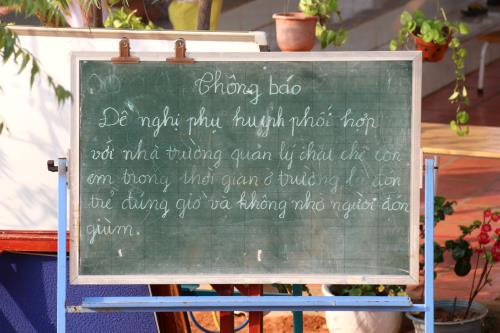 Thông báo
Đề nghị phụ huynh phối hợp
với nhà trường quản lý chặt chẽ con
em trong thời gian ở trường để đón
trẻ đúng giờ và không nhờ người đón
giùm.